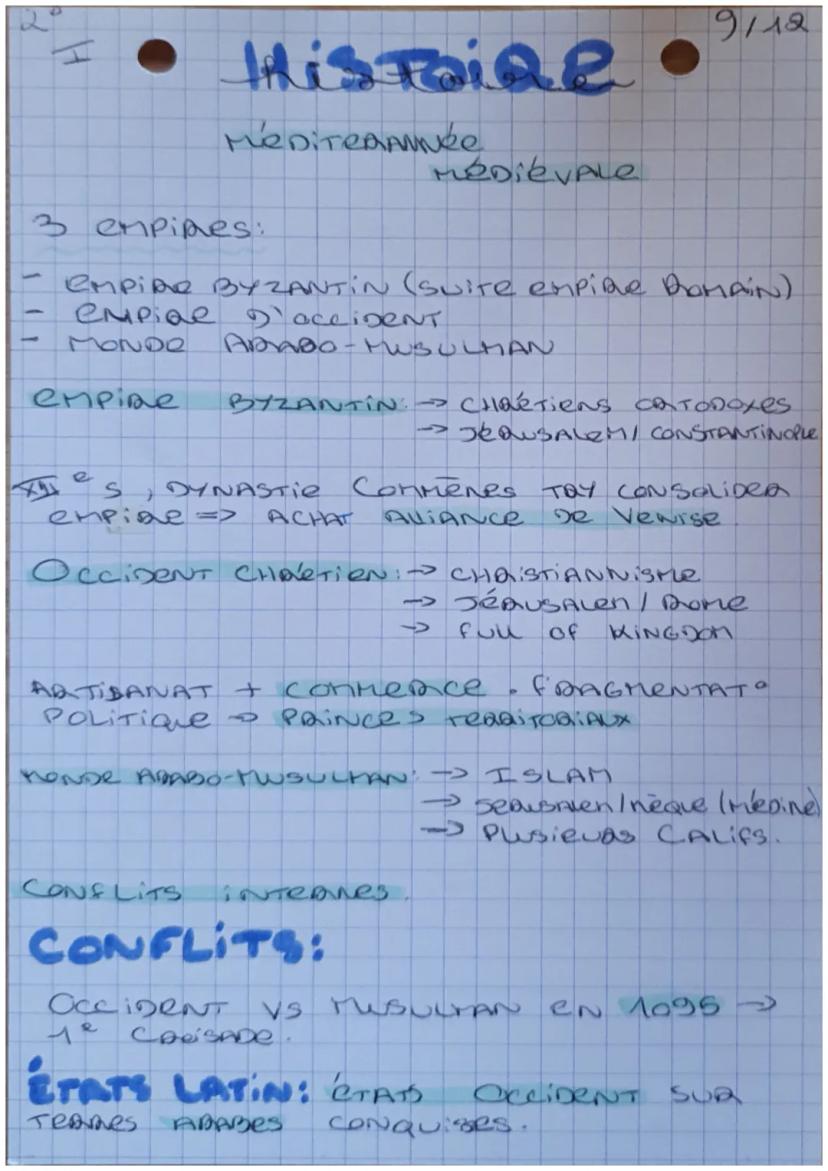 2°
I
9/12
HiSTOiRE
histoire
MÉDITERANNÉE
MÉDIÉVALE
3 EMPIRES:
- EMPIRE BYZANTIN (SUITE EMPIRE ROMAIN)
- EMPIRE D'OCCIDENT
- MONDE ARABO-MUSULMAN
EMPIRE BYZANTIN: → CHRÉTIENS ORTODOXES
→ JÉRUSALEM / CONSTANTINOPLE
XIIe S, DYNASTIE COMMÈNES TRY CONSOLIDER
EMPIRE => ACHAT ALLIANCE DE VENISE
OCCIDENT CHRÉTIEN: → CHRISTIANNISME
→ JÉRUSALEM / ROME
→ FULL OF KINGDOM
ARTISANAT + COMMERCE. FRAGMENTAT°
POLITIQUE → PRINCES TERRITORIAUX
MONDE ARABO-MUSULMAN: → ISLAM
→ JERUSALEM / MÈQUE (MÉDINE)
→ PLUSIEURS CALIFS.
CONFLITS INTERNES.
CONFLITS:
OCCIDENT VS MUSULMAN EN 1095 →
1e CROISADE.
ÉTATS LATIN: ÉTATS OCCIDENT SUR
TERRES ARABES CONQUISES.